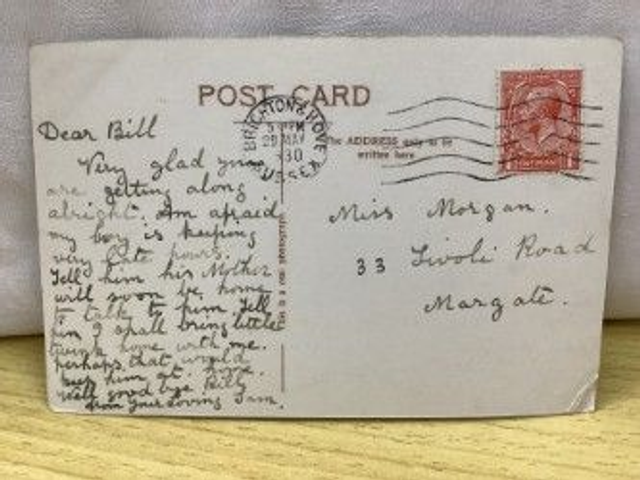 POST CARD
BRIGHTON & HOVE
5 PM
29 MAY
30
SUSSEX
The ADDRESS only to be
written here
Dear Bill
Very glad you
are getting along
alright. Am afraid
my boy is keeping
very late hours.
Tell him his Mother
will soon be home
to talk to him. Tell
him I shall bring little
home with me.
perhaps that would
keep him at home.
Well good bye Billy
from your loving
Miss Morgan.
33 Tivoli Road
Margate.